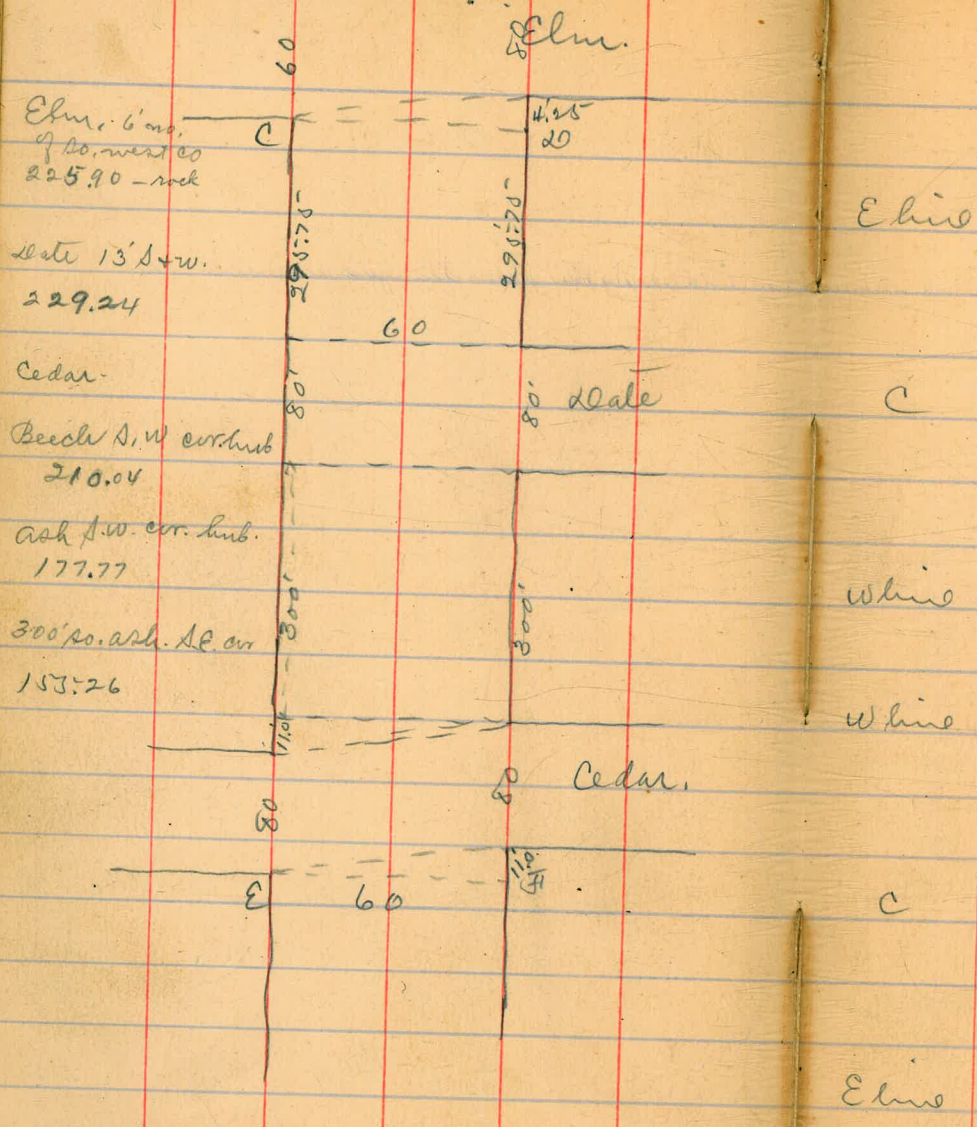 60
80
Elm.
Elm, 6' no.
of so. west co
225.90 – rock
C
4.25
20
295.75
295.75
E line
Date 13' S+W.
229.24
60
Cedar-
80'
80'
Date
C
Beech S.W cor. hub
210.04
Ash S.W. cor. hub.
177.77
300'
300'
W line
300' so. ash. S.E. cor
153.26
11.04
W line
80
80
Cedar.
11.0
E
60
C
E line